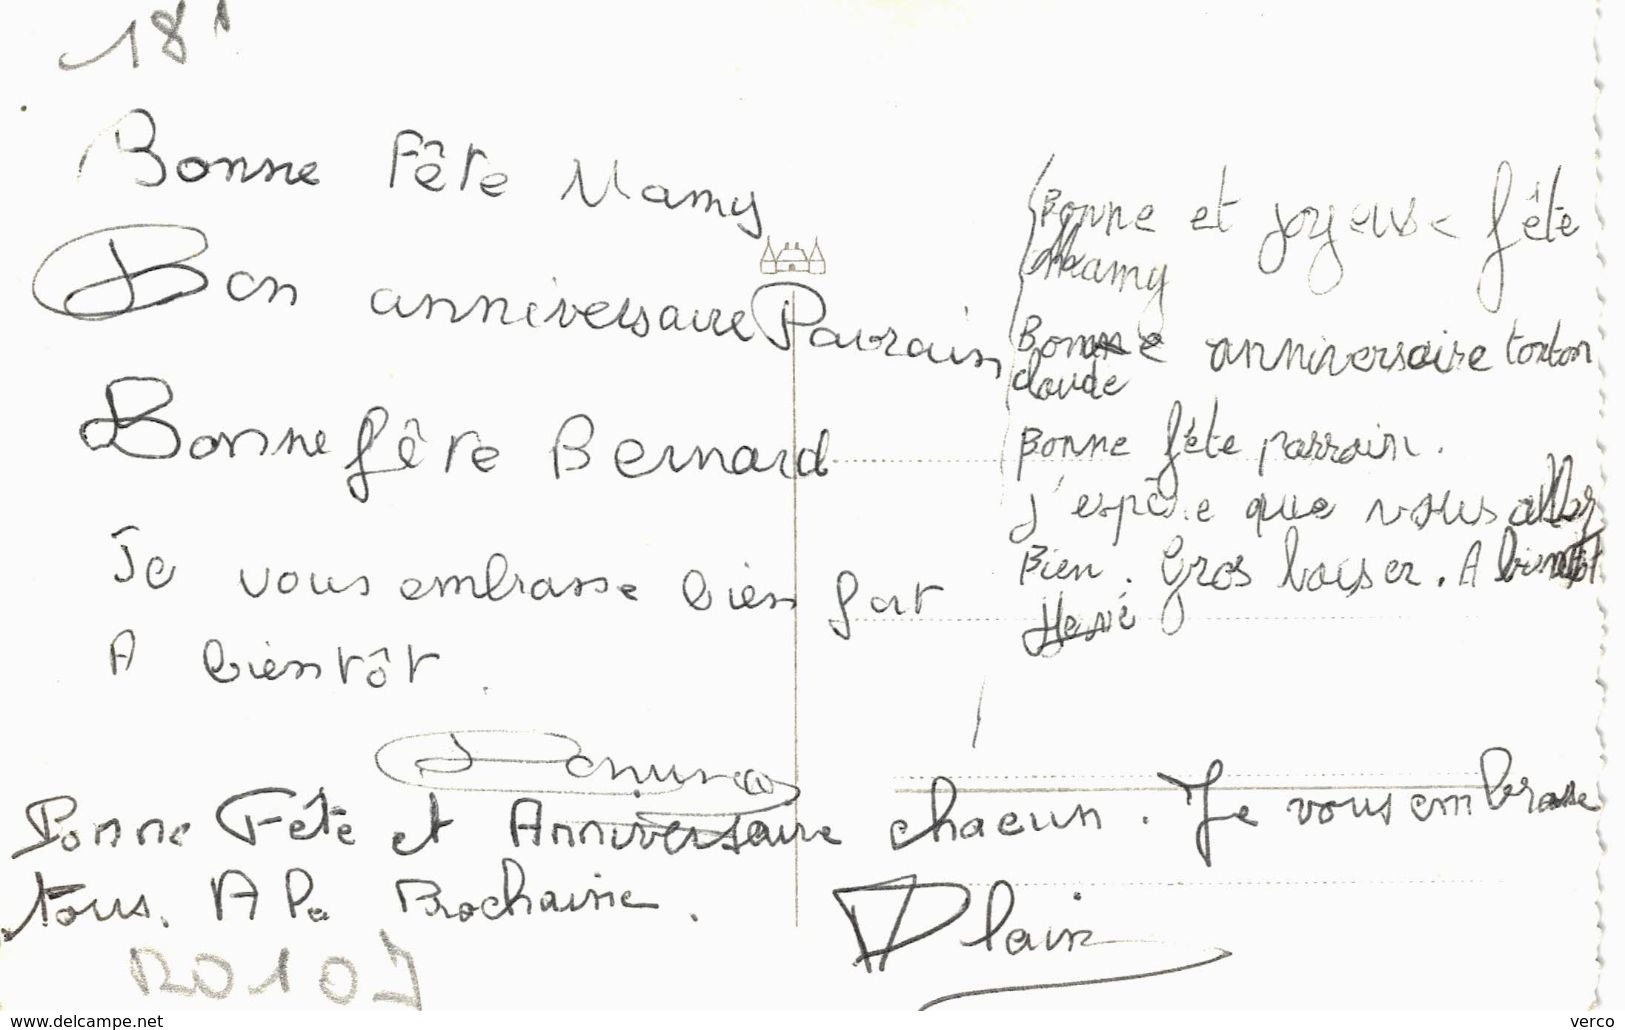 18
Bonne Fête Mamy
Bon anniversaire Parrain
Bonne fête Bernard
Je vous embrasse bien fort
A bientôt.
Bonne et joyeuse fête
Mamy
Bonne anniversaire tonton
claude
Bonne fête parrain.
j'espère que vous allez
Bien. Gros baiser. A bientôt
Hervé
Bonne Fête et Anniversaire chacun. Je vous embrasse
tous. A la Prochaine.
Alain
www.delcampe.net
verco